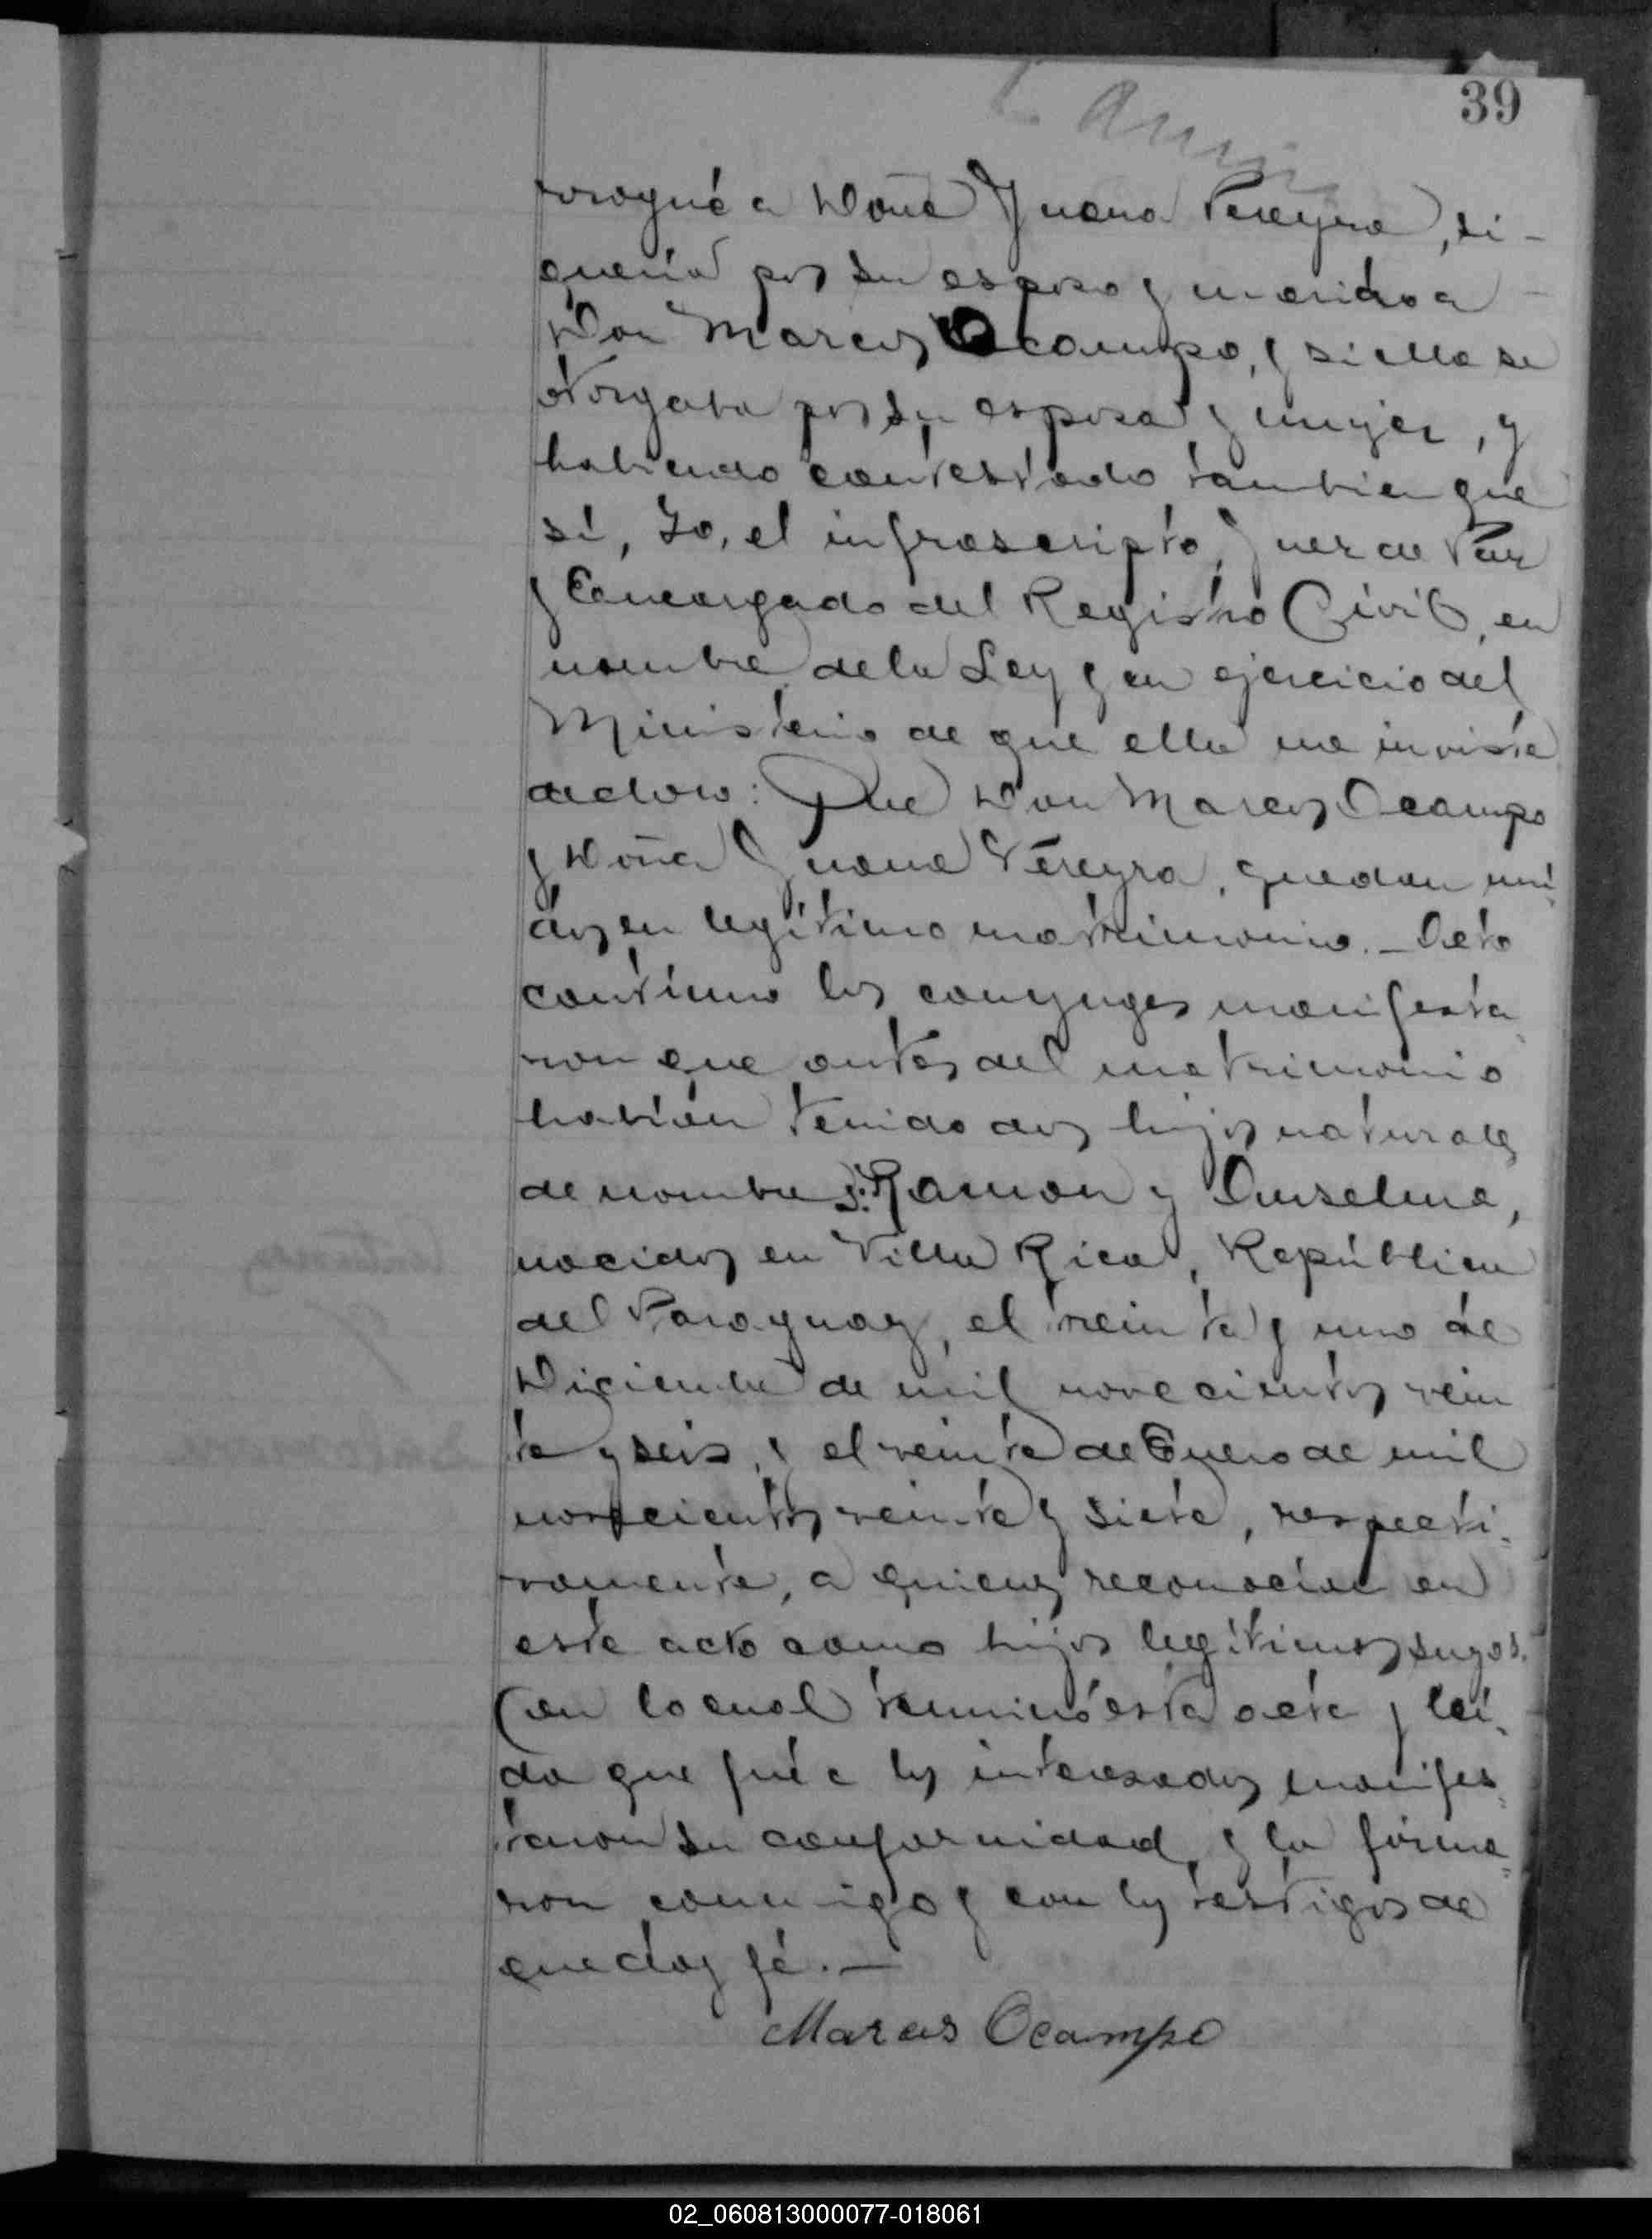 39
rrogué a Doña Juana Pereyra, si -
quería por su esposo y marido a -
Don Marcos Ocampo, y si ella se
otorgaba por su esposa y mujer, y
habiendo contestado tambien que
sí, Yo, el infrascripto, Juez de Paz
y Encargado del Registro Civil, en
nombre de la Ley y en ejercicio del
Ministerio de que ella me inviste
declaro: Que Don Marcos Ocampo
y Doña Juana Pereyra, quedan uni
dos en legítimo matrimonio. - Acto
contínuo los conyuges manifesta
ron que antes del matrimonio
habían tenido dos hijos naturales
de nombres: Ramon y Anselma,
nacidos en Villa Rica, República
del Paraguay, el treinta y uno de
Diciembre de mil novecientos vein
te y seis, y el veinte de Enero de mil
novecientos veinte y siete, respecti-
vamente, a quienes reconocían en
este acto como hijos legítimos suyos.
Con lo cual terminó esta acta y leí-
da que fué a los interesados manifes-
taron su conformidad, y la firma-
ron conmigo y con los testigos de
que doy fé. -
Marcos Ocampo
02_060813000077-018061